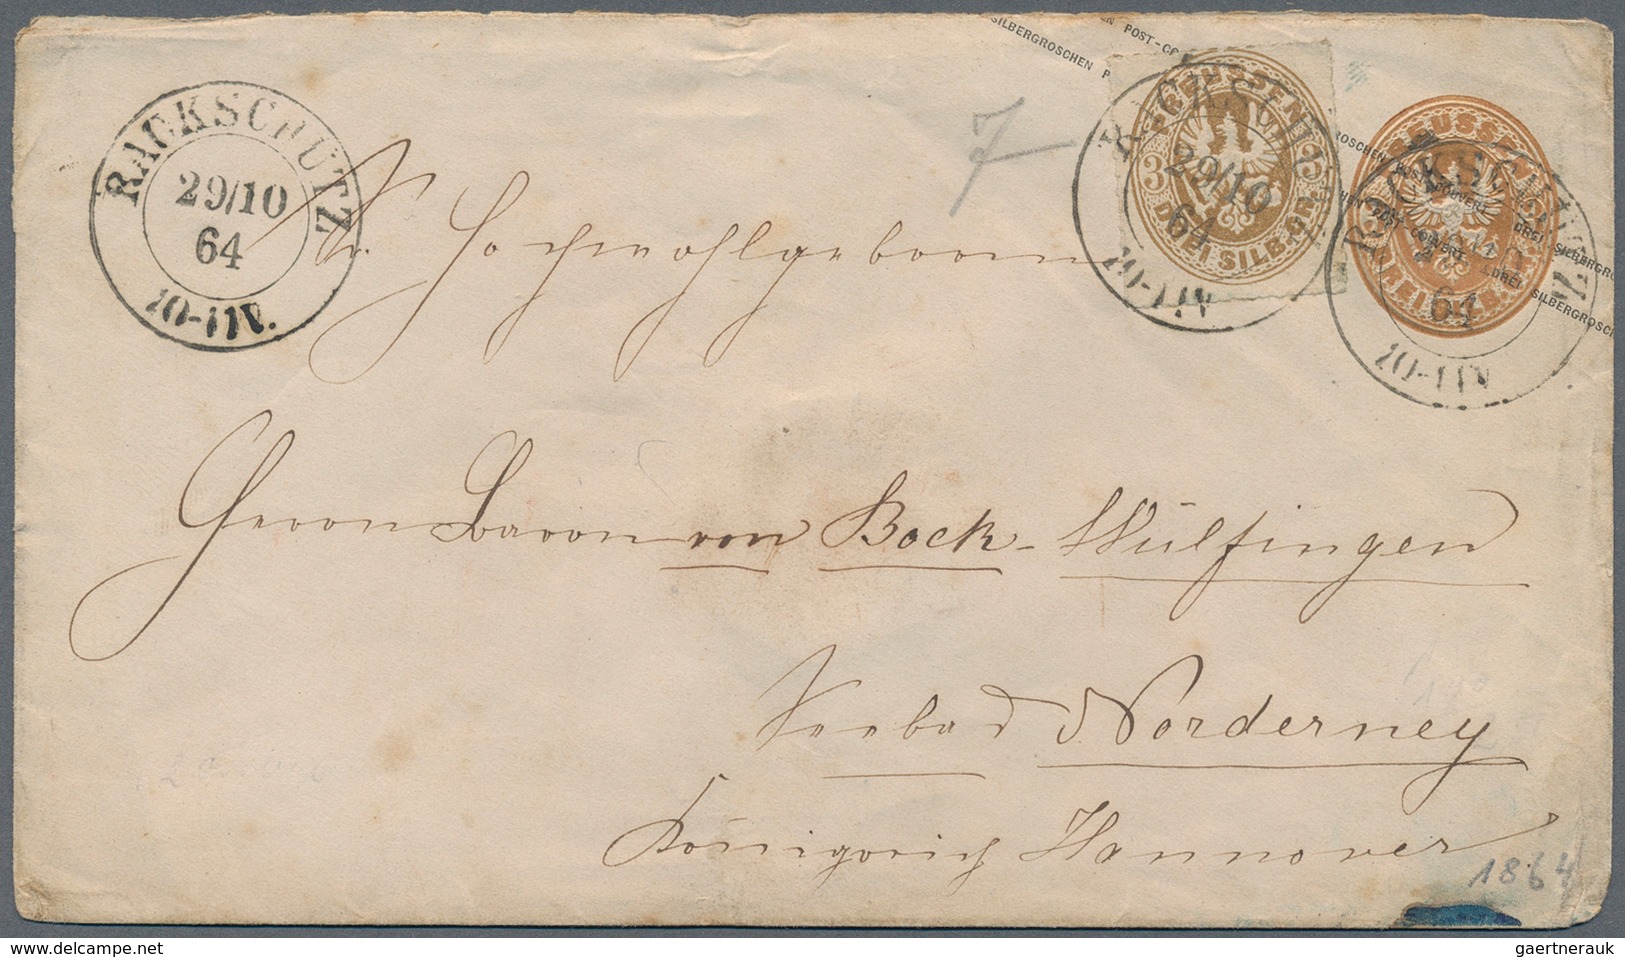 SILBERGROSCHEN P
POST-CO
RACKSCHUTZ
29/10
64
10-11V.
PREUSSEN
3 3
DREI SILB.GR.
RACKSCHUTZ
29/10
64
10-11V
PREUSSEN
RACKSCHUTZ
64
10-11V
POST-COUVERT
DREI SILBERGROSCHEN
7
Sr. Hochwohlgeboren
Herrn Baron von Bock-Wülfingen
Seebad Norderney
Königreich Hannover
1864
delcampe.net
gaertnerauk